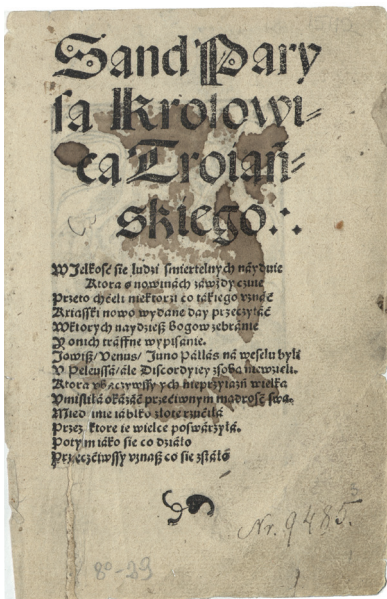 Sand Pary
sa Krolowi⸗
ca Troiań⸗
skiego.:.
Wielkość sie ludzi śmiertelnych náyduie
Ktora o nowinách záwżdy czuie
Przeto chćeli niektorzi co tákiego vznáć
Kxiąſſki nowo wydáne day przeczytáć
Wktorych náydzieſz Bogow zebránie
Y o nich tráffne wypiſánie.
Jowiſz/ Venus/ Juno Pállás ná weſelu byli
V Peleuſſá/ ále Diſcordyiey zſobą niewzieli.
Ktora vbaczywſſy ych nieprzyiaźń wielka
Vmiſliłá okázáć przećiwnym mądrość ſwą.
Miedzi nie iábłko złote rzućiłá
Przez ktore ie wielce poſwárzyłá.
Potym iáko sie co dziáło
Przeczćiwſſy vznaſz co sie zſtáło
Nr. 9485.
8°-23